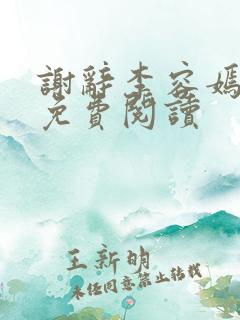 謝辭李容嫣
免費閱讀
王新明
未经同意禁止转载